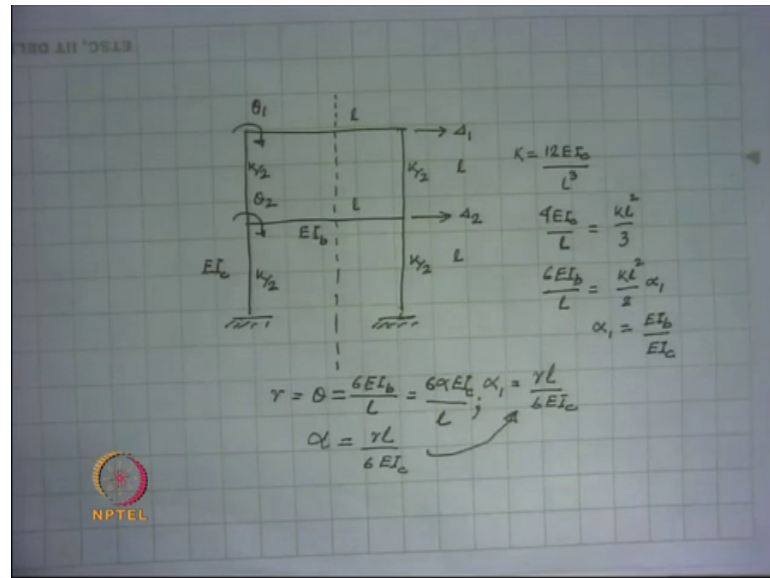 ETSC, IIT DEL
θ₁ L
→ Δ₁
K/2 K/2 L
θ₂ L
→ Δ₂
EI_b
EI_c K/2 K/2 L
K = 12EI_c / L³
4EI_c / L = KL² / 3
6EI_b / L = KL² / 2 α₁
α₁ = EI_b / EI_c
r = θ = 6EI_b / L = 6αEI_c / L ; α₁ = rL / 6EI_c
α = rL / 6EI_c
NPTEL